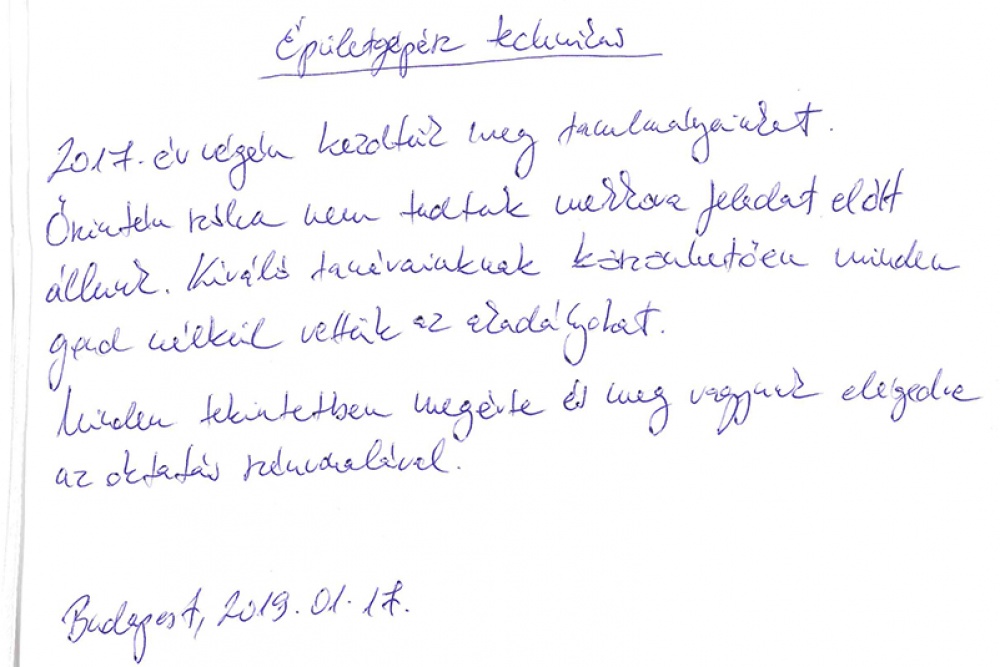 Épületgépész technikus
2017. év végén kezdtük meg tanulmányainkat.
Őszintén szólva nem tudtuk mekkora feladat előtt
állunk. Kiváló tanárainknak köszönhetően minden
gond nélkül vettük az akadályokat.
Minden tekintetben megérte és meg vagyunk elégedve
az oktatás színvonalával.
Budapest, 2019.01.17.